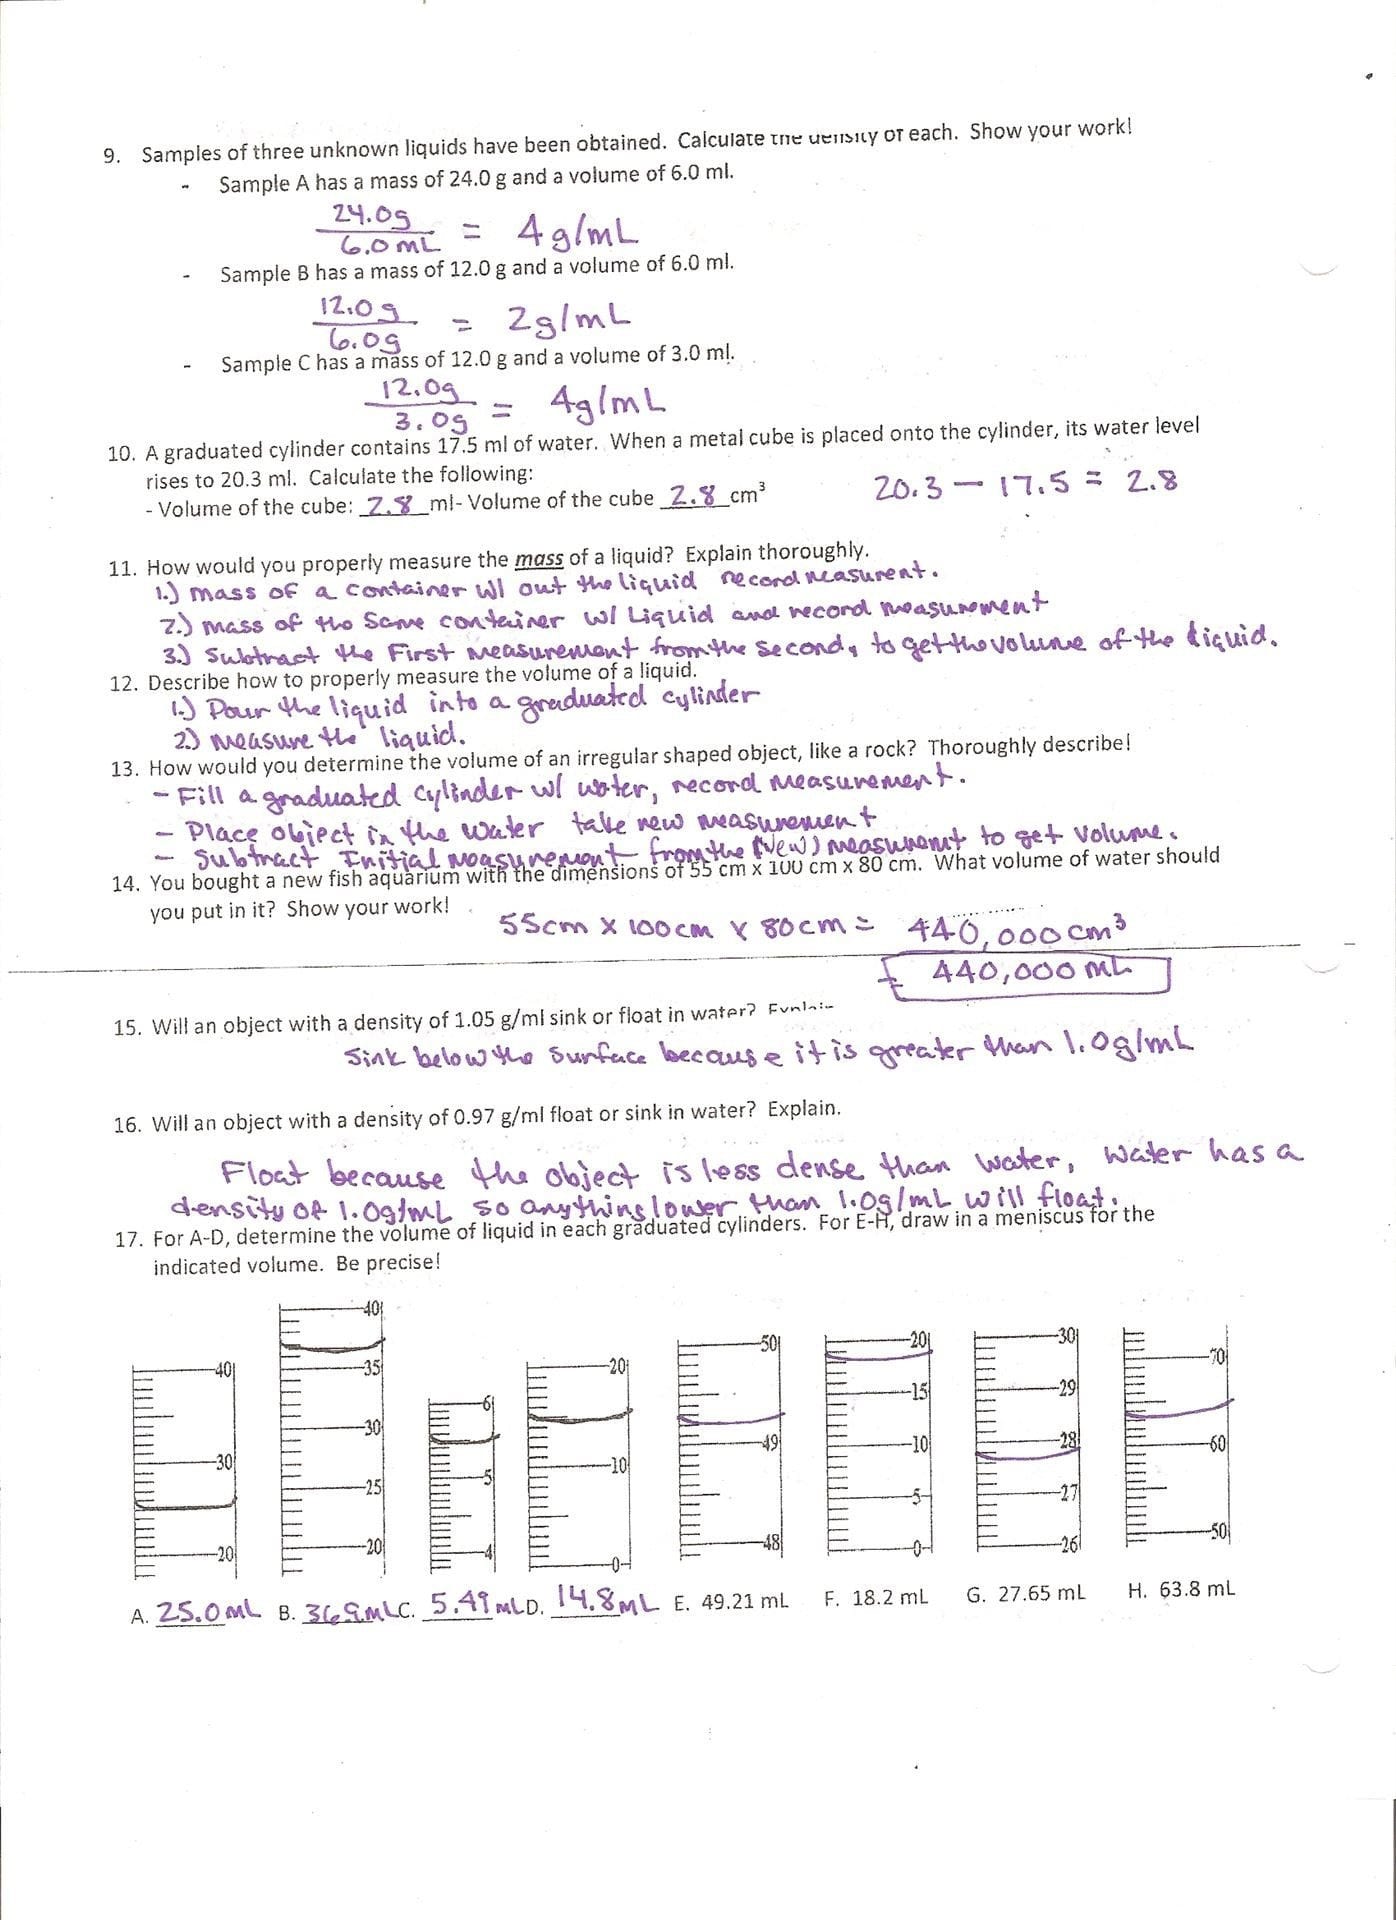 9. Samples of three unknown liquids have been obtained. Calculate the density of each. Show your work!
- Sample A has a mass of 24.0 g and a volume of 6.0 ml.
24.0g
6.0 mL = 4g/mL
- Sample B has a mass of 12.0 g and a volume of 6.0 ml.
12.0g
6.0g = 2g/mL
- Sample C has a mass of 12.0 g and a volume of 3.0 ml.
12.0g
3.0g = 4g/mL
10. A graduated cylinder contains 17.5 ml of water. When a metal cube is placed onto the cylinder, its water level
rises to 20.3 ml. Calculate the following:
20.3 - 17.5 = 2.8
- Volume of the cube: 2.8 ml- Volume of the cube 2.8 cm³
11. How would you properly measure the mass of a liquid? Explain thoroughly.
1.) mass of a container w/ out the liquid record measurent.
2.) mass of the same container w/ Liquid and record measurement
3.) Subtract the First measurement from the second, to get the volume of the liquid.
12. Describe how to properly measure the volume of a liquid.
1.) Pour the liquid into a graduated cylinder
2.) measure the liquid.
13. How would you determine the volume of an irregular shaped object, like a rock? Thoroughly describe!
- Fill a graduated cylinder w/ water, record measurement.
- Place object in the water take new measurement
- Subtract Initial measurement from the (New) measurment to get volume.
14. You bought a new fish aquarium with the dimensions of 55 cm x 100 cm x 80 cm. What volume of water should
you put in it? Show your work!
55cm x 100cm x 80cm = 440,000 cm³
= 440,000 mL
15. Will an object with a density of 1.05 g/ml sink or float in water? Explain
Sink below the surface because it is greater than 1.0g/mL
16. Will an object with a density of 0.97 g/ml float or sink in water? Explain.
Float because the object is less dense than water, water has a
density of 1.0g/mL so anything lower than 1.0g/mL will float.
17. For A-D, determine the volume of liquid in each graduated cylinders. For E-H, draw in a meniscus for the
indicated volume. Be precise!
40 30 20
40 35 30 25 20
6 5 4
20 10 0
50 49 48
20 15 10 5 0
30 29 28 27 26
70 60 50
A. 25.0mL B. 36.9mL C. 5.49mL D. 14.8mL E. 49.21 mL F. 18.2 mL G. 27.65 mL H. 63.8 mL